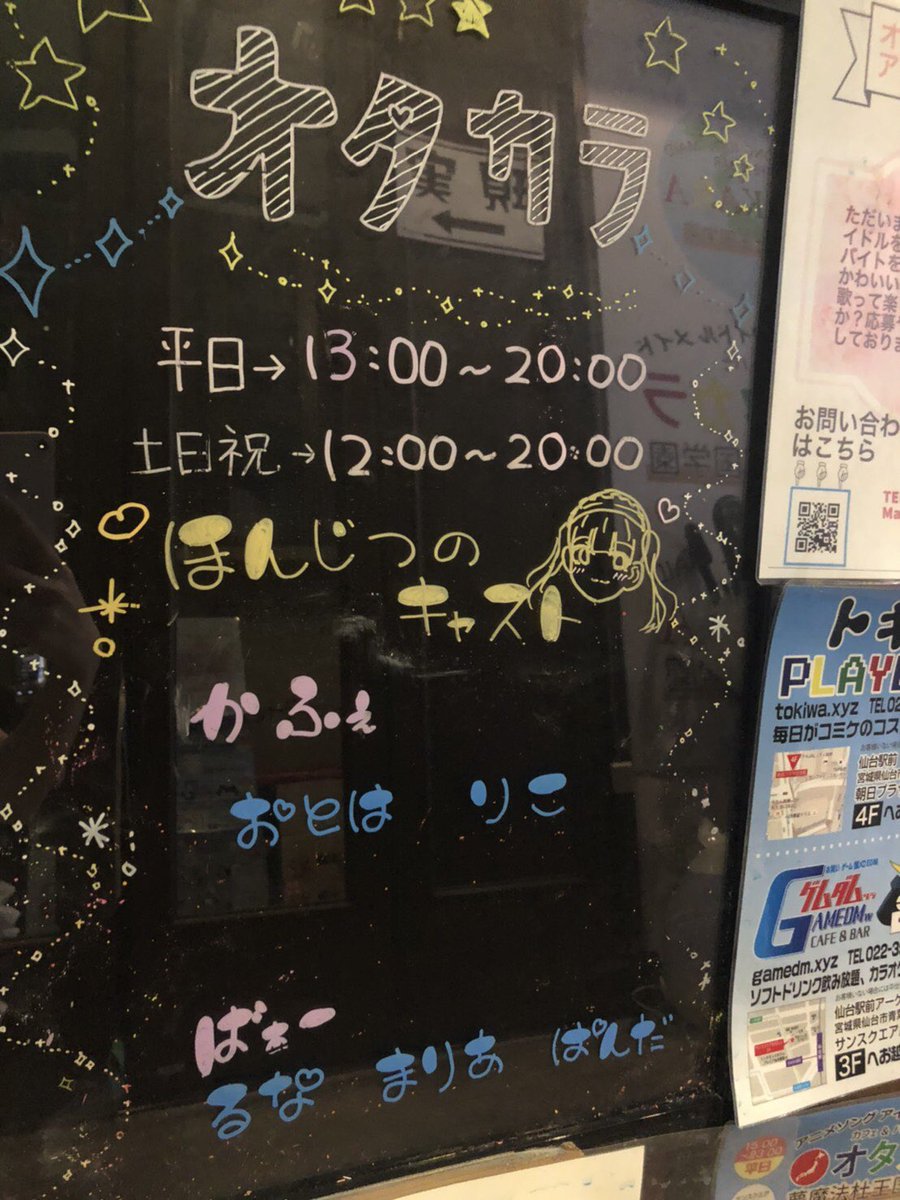 オタカラ
平日→13:00～20:00
土日祝→12:00～20:00
ほんじつの
キャスト
かふぇ
おとは りこ
ばぁー
るな まりあ ぱんだ
ただいま
イドルを
バイトを
かわいい
歌って楽
か?応募や
しており
お問い合わ
はこちら
TE
Ma
トキ
PLAYE
tokiwa.xyz TEL 02
毎日がコミケのコス
仙台駅前
宮城県仙台市
朝日プラ
4Fへお
ゲムダム
GAMEDM
CAFE & BAR
gamedm.xyz TEL 022-3
ソフトドリンク飲み放題、カラオケ
仙台駅前アーケ
宮城県仙台市青
サンスクエア
3Fへお越
アニメソング アイ
カフェ&バ
平日
オタ